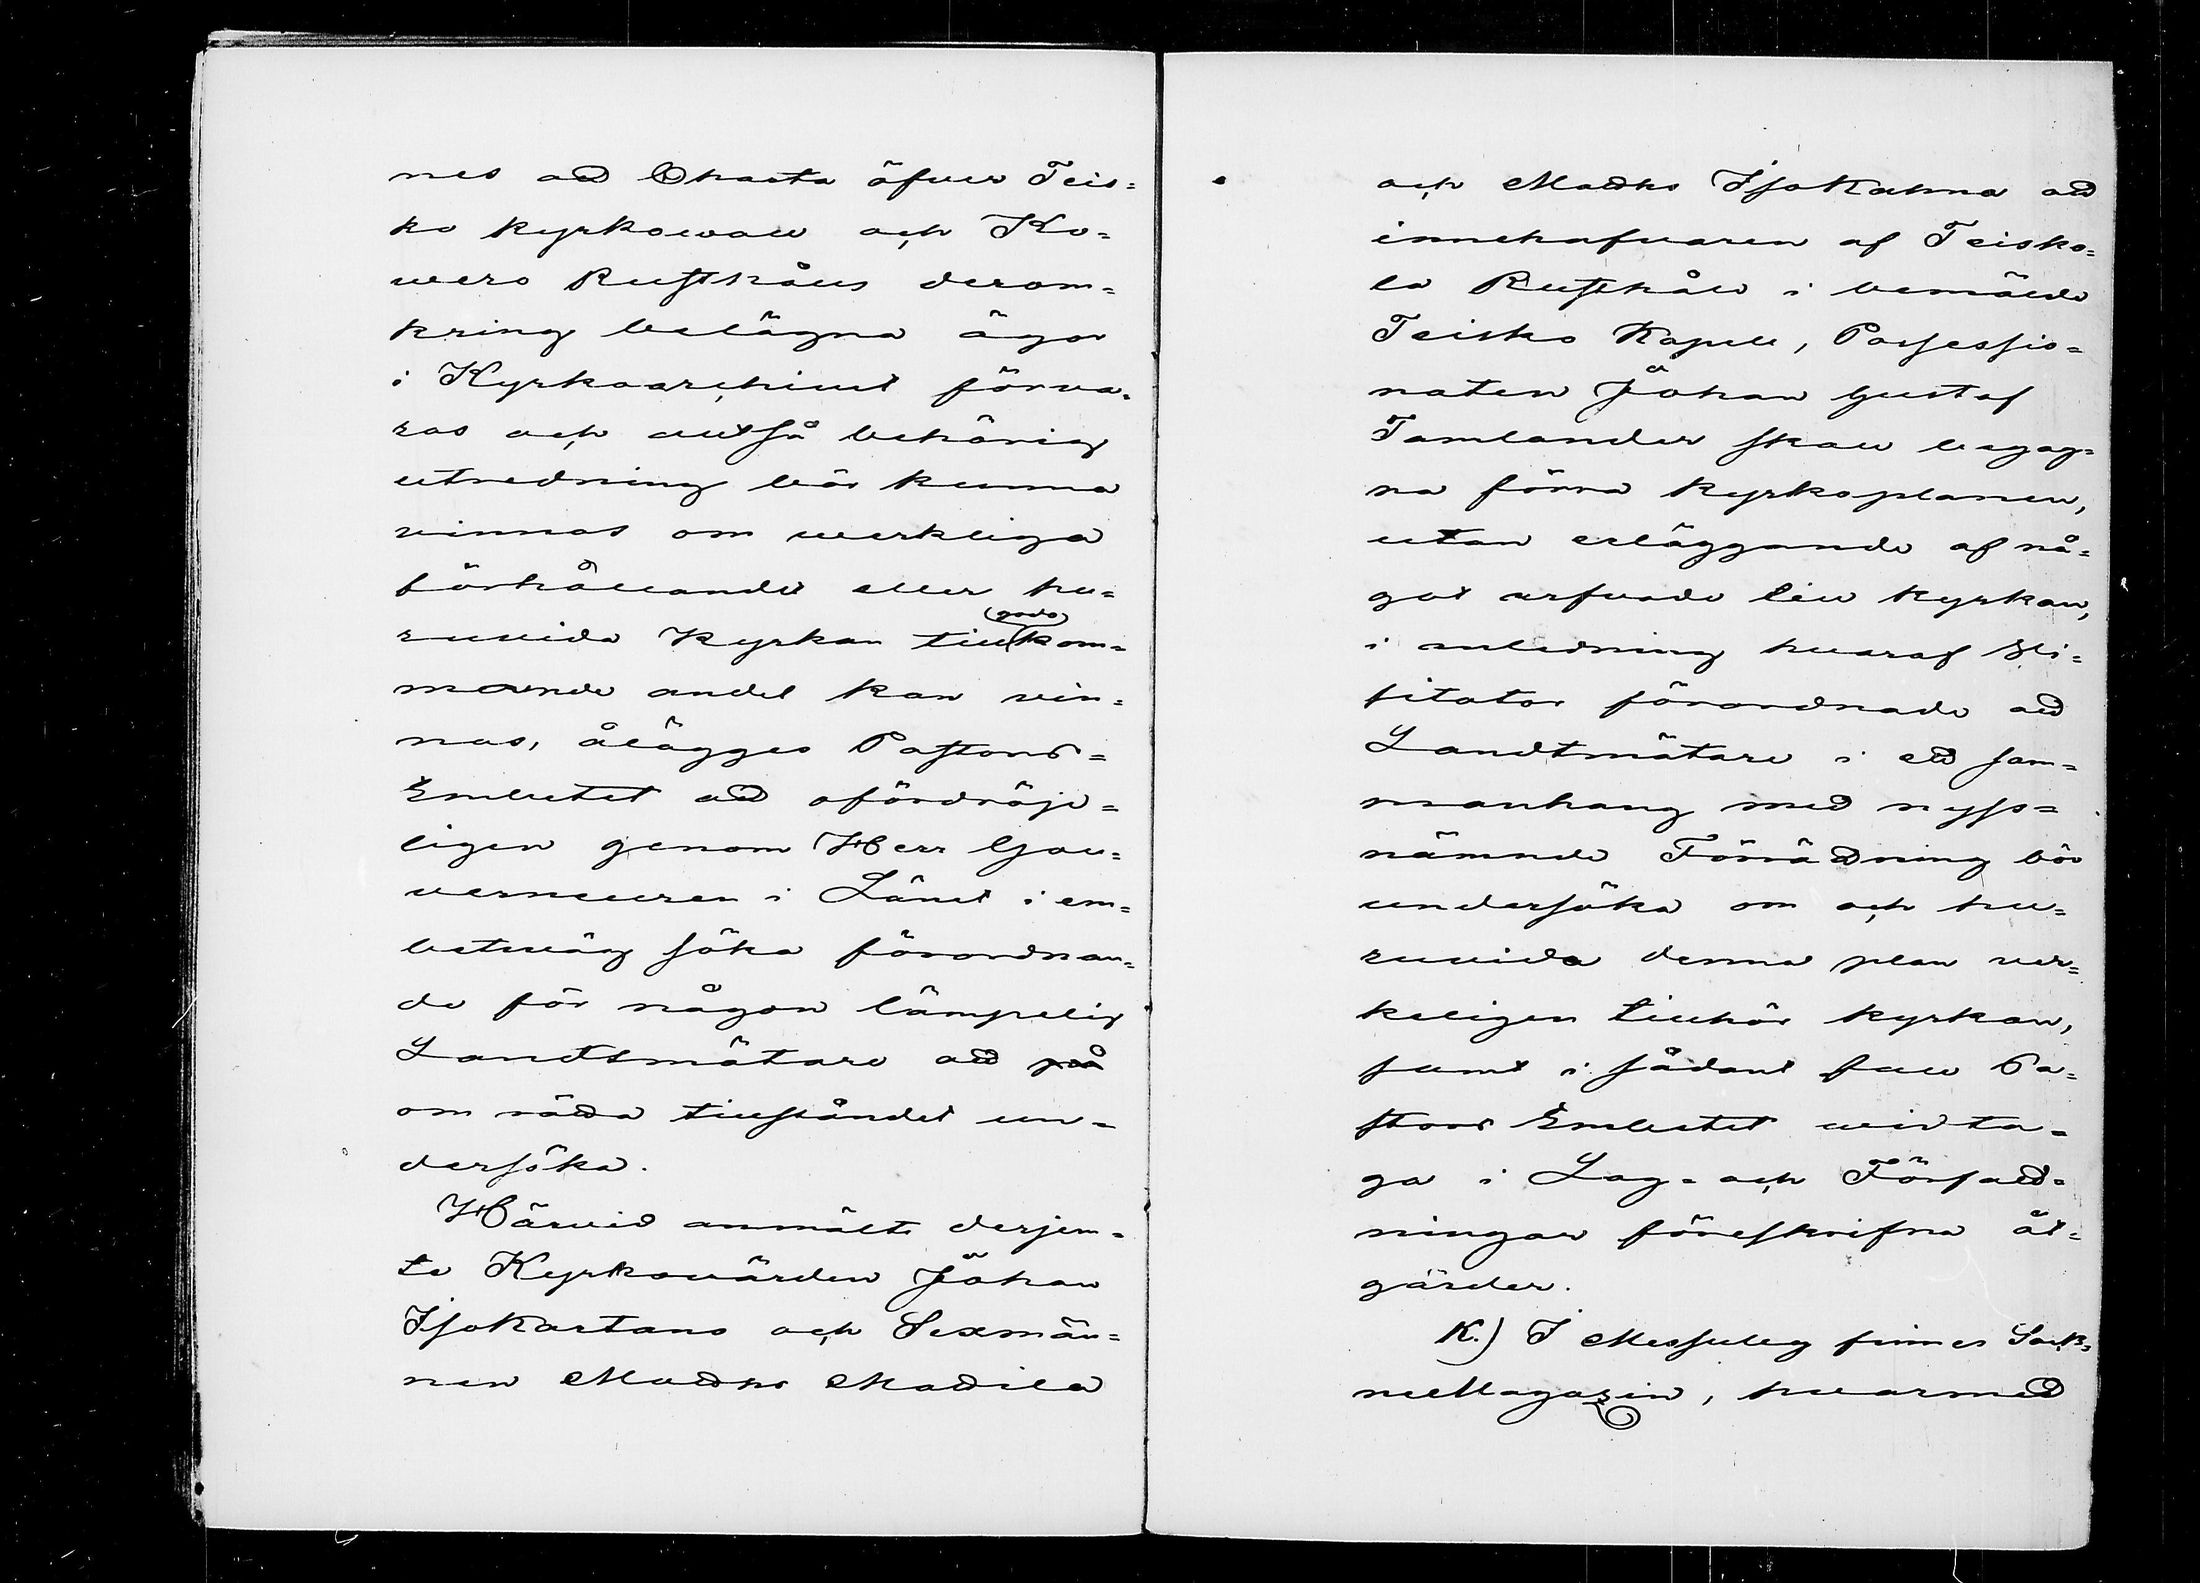 nes att Charta öfver Teis=
ko kyrkovall och Ko=
vero Rusthålls derom=
kring belägna ägor
i Kyrkoarchivet förva=
ras och altså behörig
utredning bör kunna
vinnas om verkliga
förhållandet eller hu=
ruvida Kyrkan till (godo) kom=
mande andel kan vin=
nas, ålägges Pastors=
Embetet att ofördröje=
ligen genom Herr Gou=
verneuren i Länet i em=
betsväg söka förordnan=
de för någon lämpelig
Landtmätare att på
om rätta tillståndet un=
dersöka.
Härvid anmälte derjem=
te Kyrkovärden Johan
Isokartano och Sexmän=
nen Matths Mattila
och Matths Isokahma att
innehafvaren af Teisko=
la Rusthåll i bemälde
Teisko Kapell, Possessio=
naten Johan Gustaf
Tamlander skall begag=
na förra kyrkoplanen,
utan erläggande af nå=
got arfvode till kyrkan,
i anledning hvaraf Vi=
sitator förordnade att
Landtmätare i ett sam=
manhang med nyss=
nämnde Förrättning bör
undersöka om och hu=
ruvida denna plan ver=
keligen tillhör kyrkan,
samt i sådant fall Pa=
stors Embetet vidta=
ga i Lag= och Författ=
ningar föreskrifna åt=
gärder.
K.) I Messuby finnes Sock=
neMagazin, hvarmed